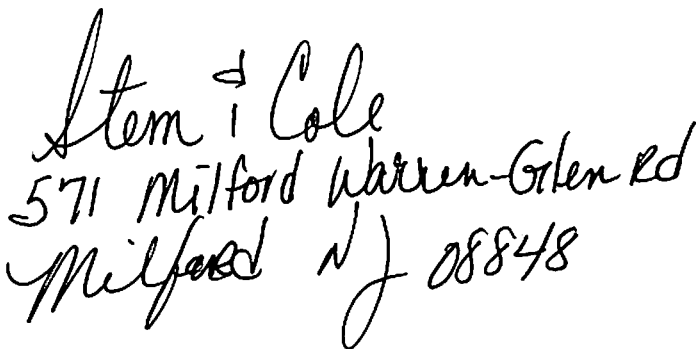 Stem & Cole
571 Milford Warren-Glen Rd
Milford NJ 08848